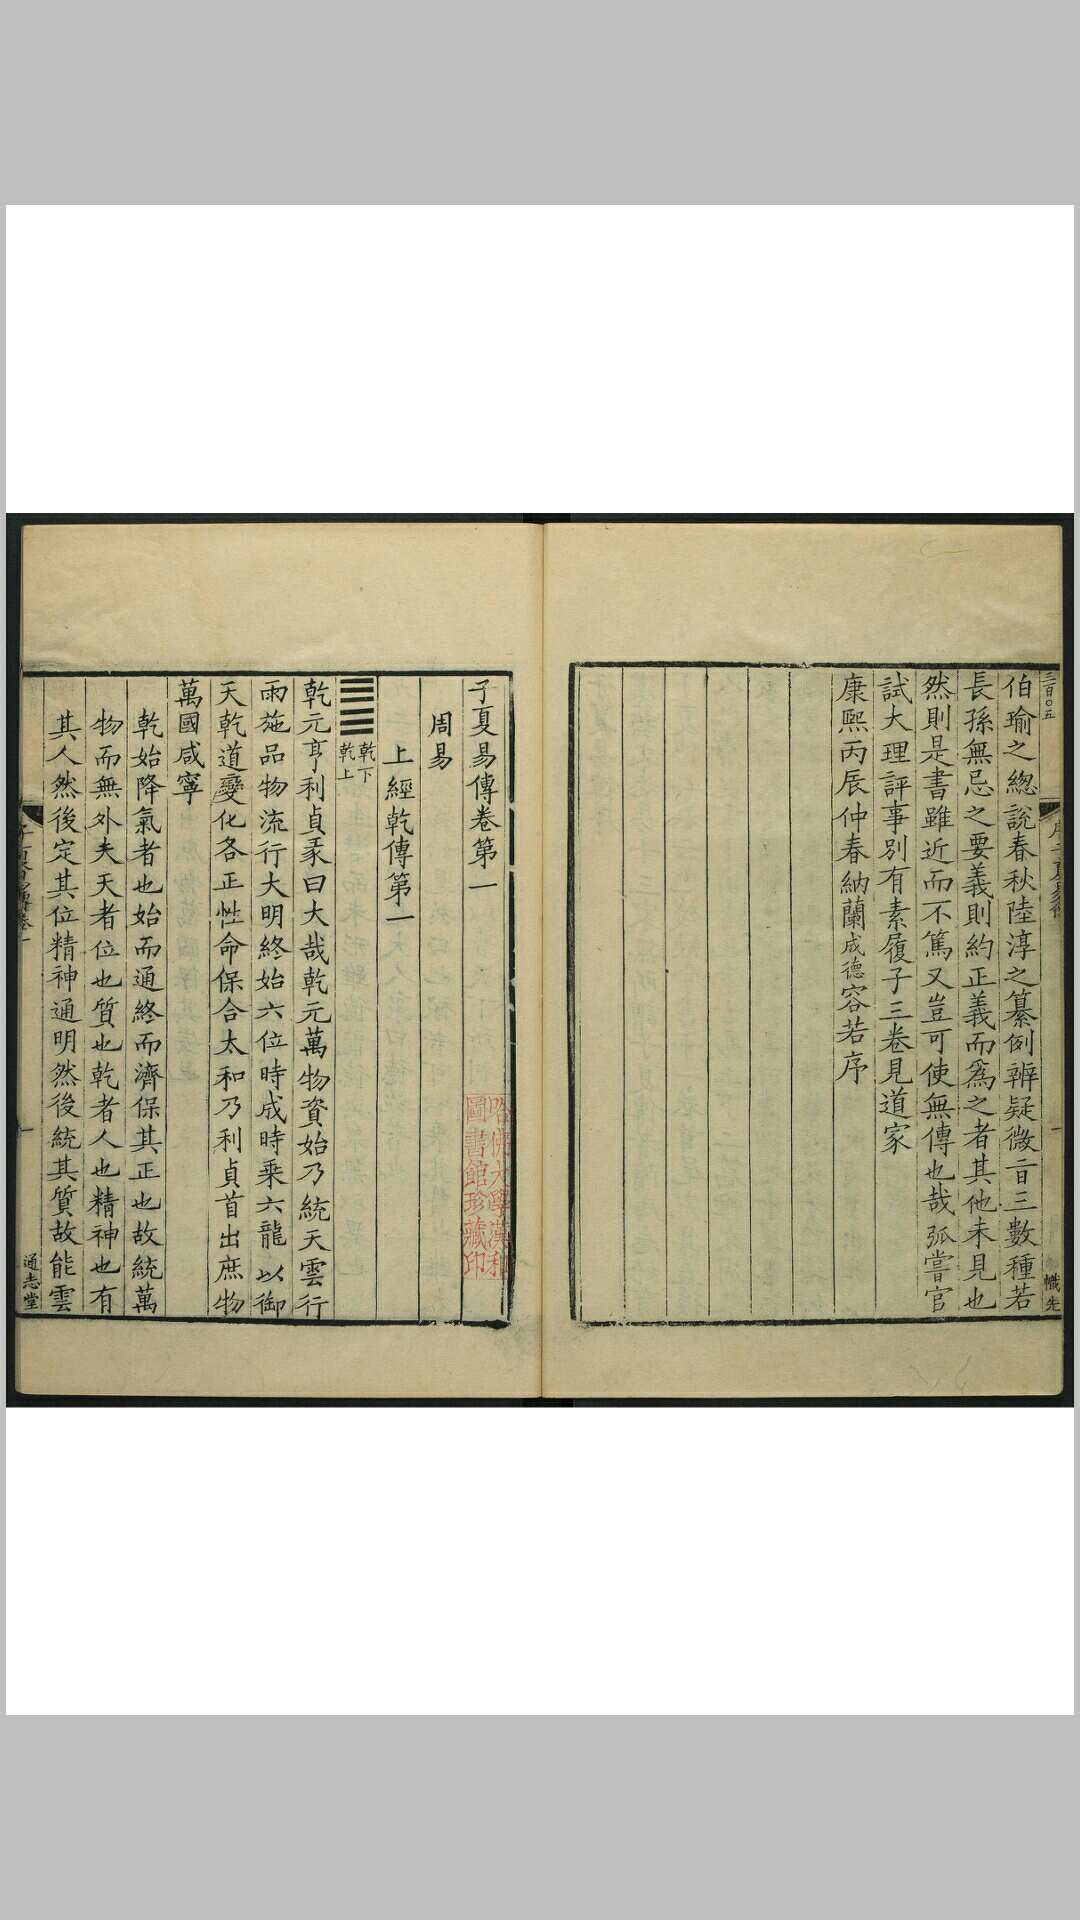 三百〇五
伯瑜之緫說春秋陸淳之纂例辨疑微旨三數種若
長孫無忌之要義則約正義而爲之者其他未見也
然則是書雖近而不篤又豈可使無傳也哉弧嘗官
試大理評事别有素履子三卷見道家
康熙丙辰仲春納蘭成德容若序
子夏易傳卷第一
周易
上經乾傳第一
乾下
乾上
乾元亨利貞彖曰大哉乾元萬物資始乃統天雲行
雨施品物流行大明終始六位時成時乘六龍以御
天乾道變化各正性命保合太和乃利貞首出庶物
萬國咸寧
乾始降氣者也始而通終而濟保其正也故統萬
物而無外夫天者位也質也乾者人也精神也有
其人然後定其位精神通明然後統其質故能雲
一
通志堂
哈佛大學漢和
圖書館珍藏印